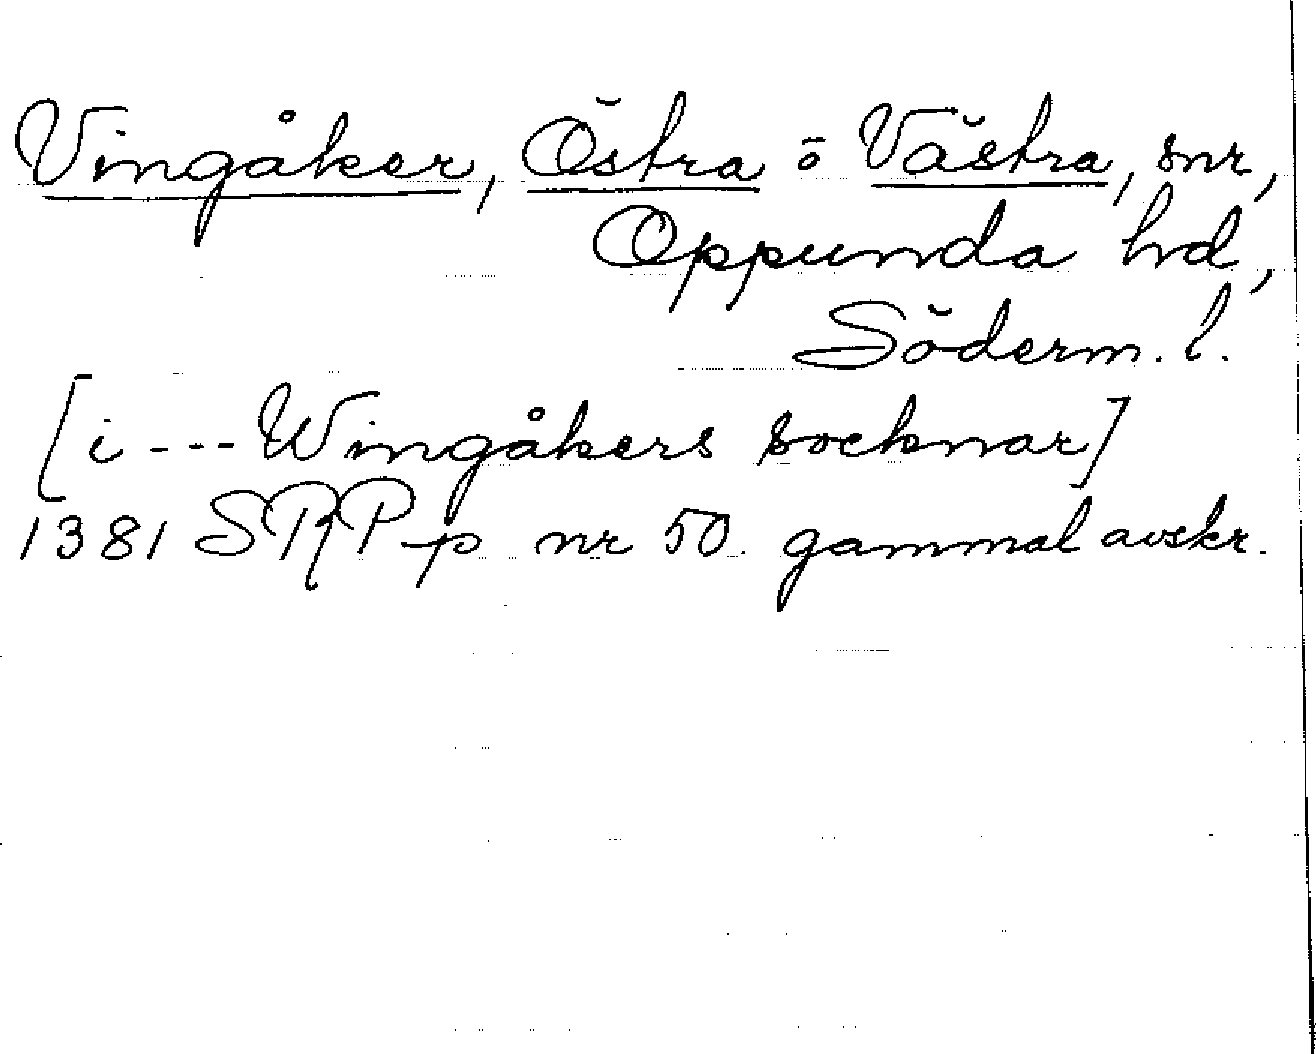 Vingåker, Östra o Västra, snr,
Oppunda hd,
Söderm. l.
[i --- Wingåkers socknar]
1381 SRPp nr 50. gammal avskr.